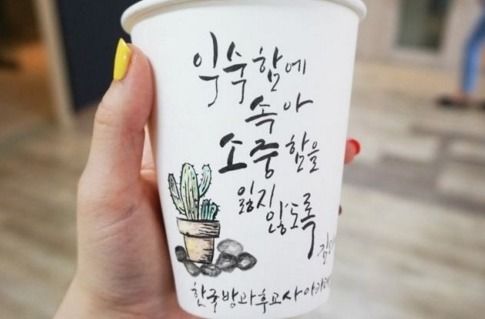 익숙함에
속아
소중함을
잃지
않도록
한국방과후교사아카데